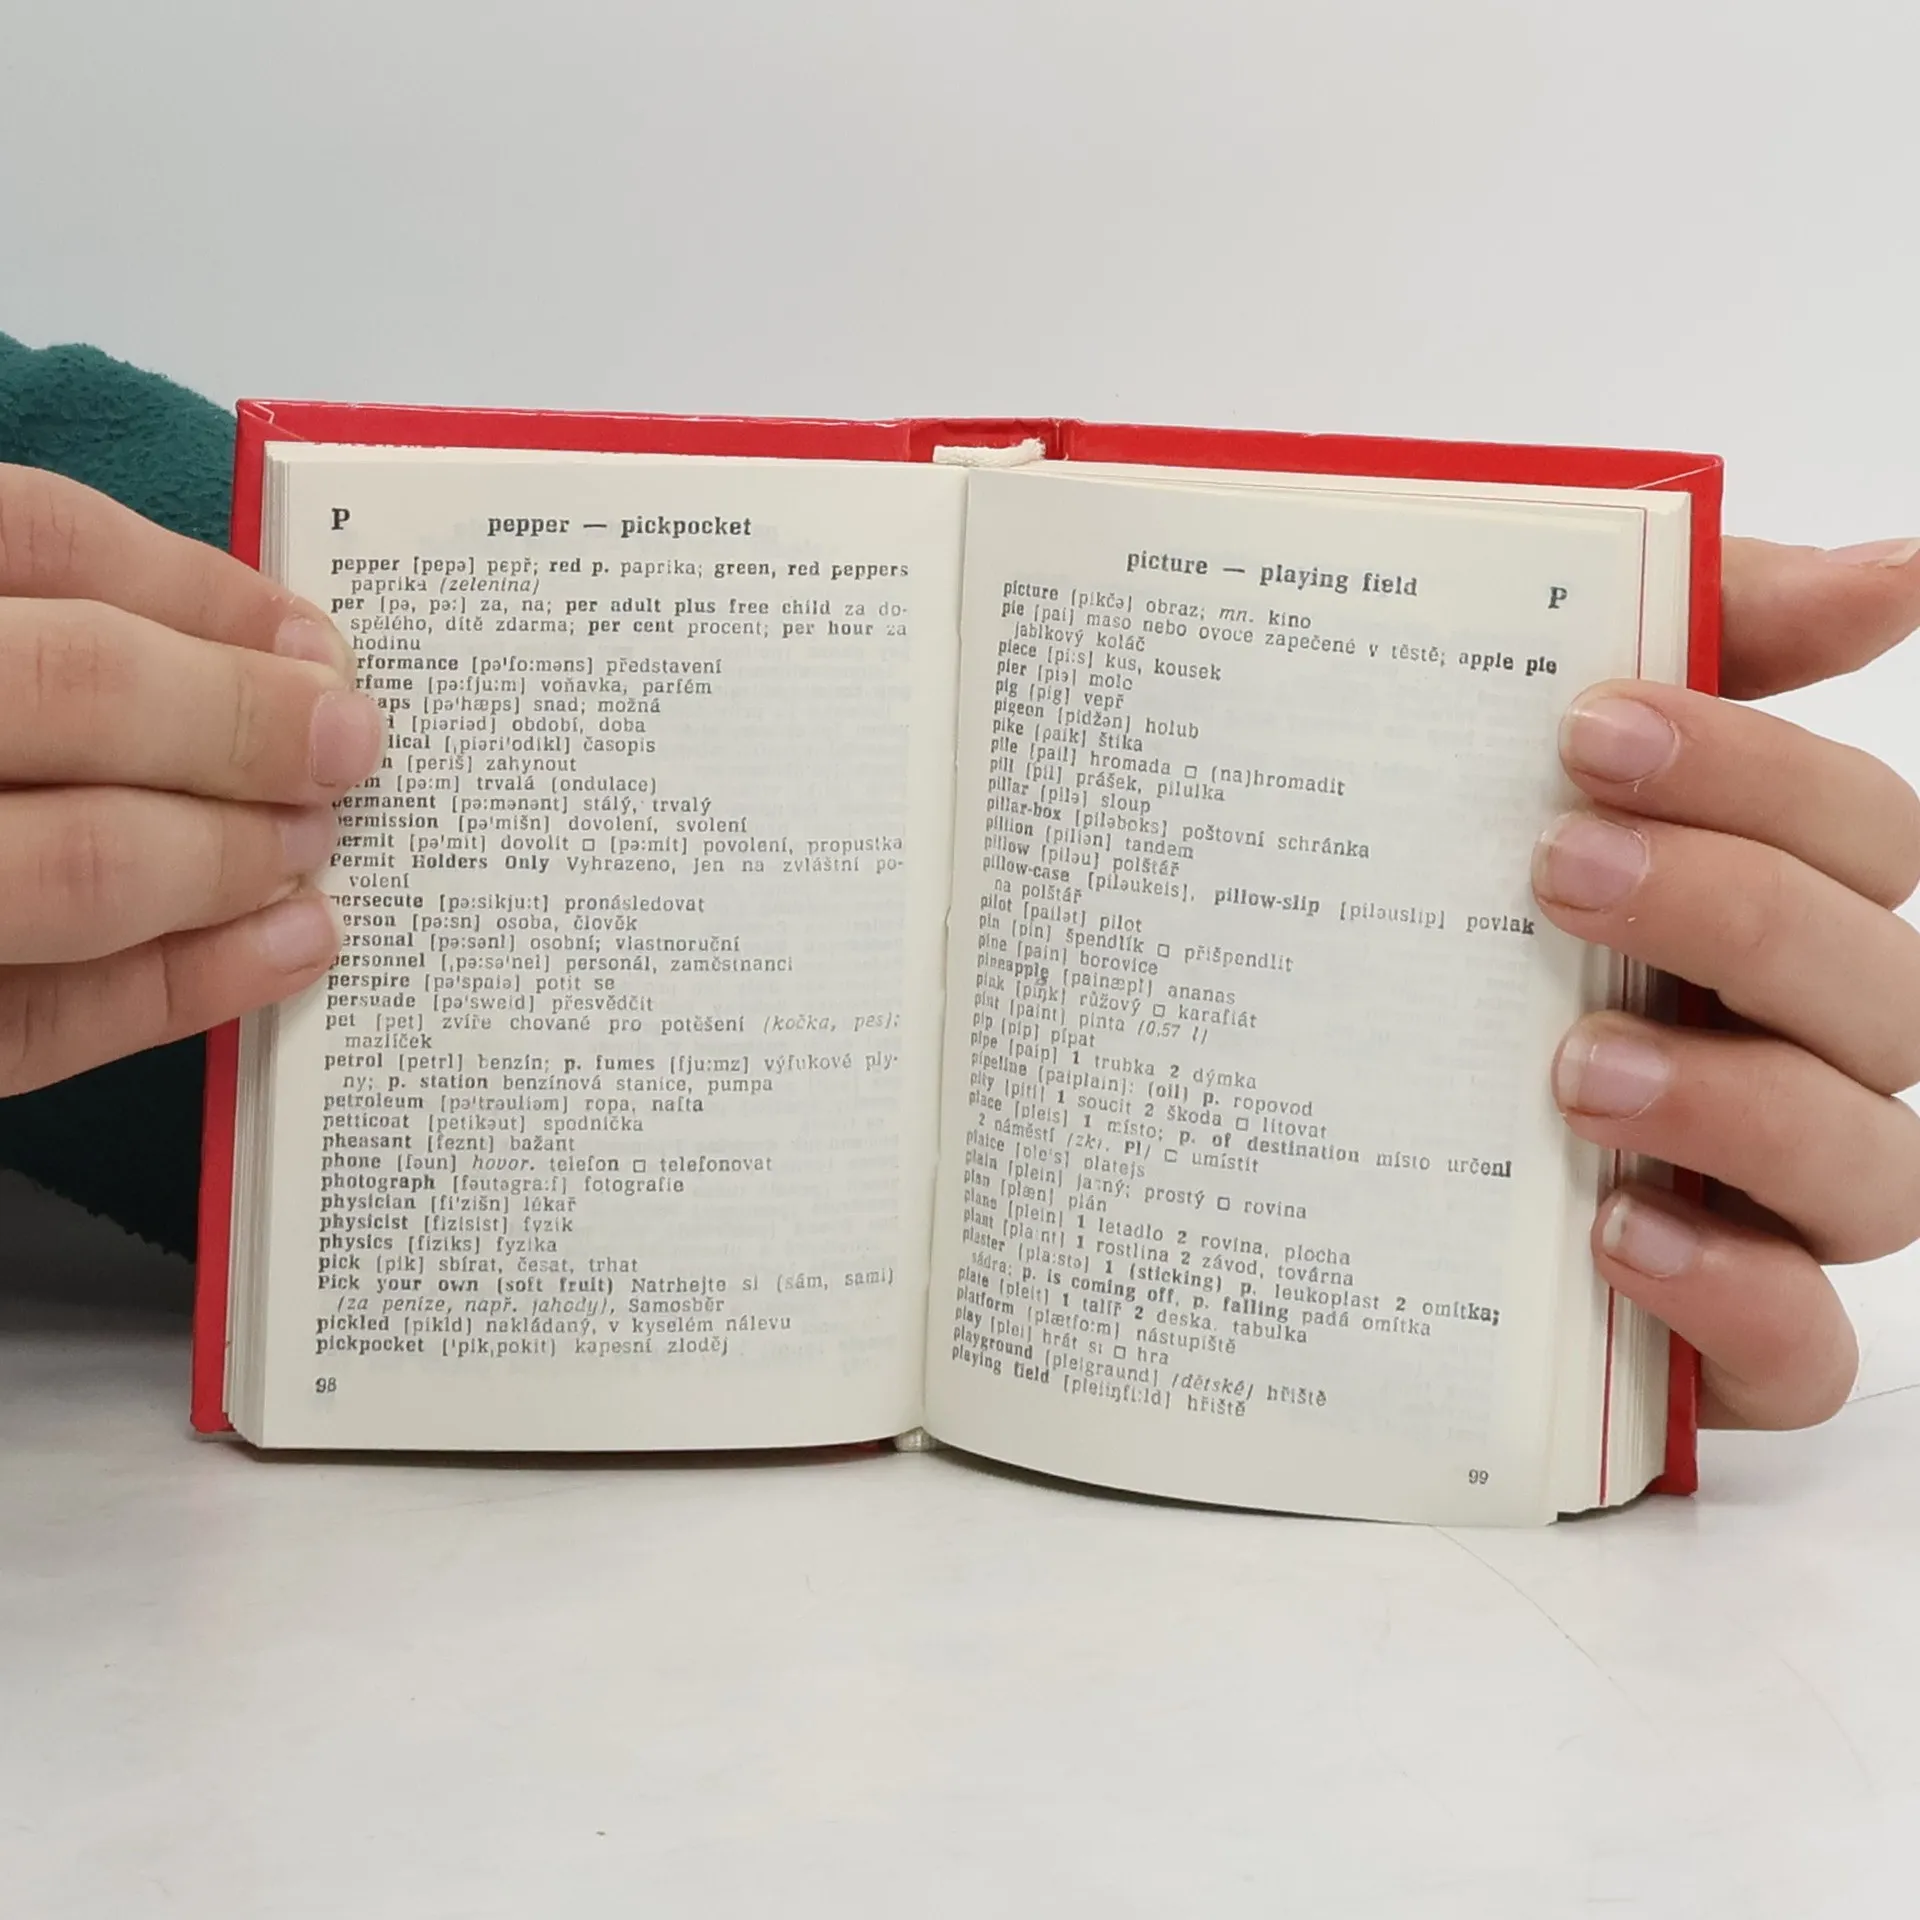 P
pepper — pickpocket
pepper [pepə] pepř; red p. paprika; green, red peppers
paprika (zelenina)
per [pə, pə:] za, na; per adult plus free child za do-
spělého, dítě zdarma; per cent procent; per hour za
hodinu
rformance [pə'fo:məns] představení
rfume [pə:fju:m] voňavka, parfém
aps [pə'hæps] snad; možná
d [piəriəd] období, doba
dical [ˌpiəri'odikl] časopis
h [periš] zahynout
m [pə:m] trvalá (ondulace)
permanent [pə:mənənt] stálý, trvalý
permission [pə'mišn] dovolení, svolení
permit [pə'mit] dovolit □ [pə:mit] povolení, propustka
Permit Holders Only Vyhrazeno, jen na zvláštní po-
volení
persecute [pə:sikju:t] pronásledovat
person [pə:sn] osoba, člověk
personal [pə:sənl] osobní; vlastnoruční
personnel [ˌpə:sə'nel] personál, zaměstnanci
perspire [pə'spaiə] potit se
persuade [pə'sweid] přesvědčit
pet [pet] zvíře chované pro potěšení (kočka, pes);
mazlíček
petrol [petrl] benzín; p. fumes [fju:mz] výfukové ply-
ny; p. station benzínová stanice, pumpa
petroleum [pə'trəuliəm] ropa, nafta
petticoat [petikəut] spodnička
pheasant [feznt] bažant
phone [fəun] hovor. telefon □ telefonovat
photograph [fəutəgra:f] fotografie
physician [fi'zišn] lékař
physicist [fizisist] fyzik
physics [fiziks] fyzika
pick [pik] sbírat, česat, trhat
Pick your own (soft fruit) Natrhejte si (sám, sami)
(za peníze, např. jahody), Samosběr
pickled [pikld] nakládaný, v kyselém nálevu
pickpocket ['pikˌpokit] kapesní zloděj
98
picture — playing field
P
picture [pikčə] obraz; mn. kino
pie [pai] maso nebo ovoce zapečené v těstě; apple pie
jablkový koláč
piece [pi:s] kus, kousek
pier [piə] molo
pig [pig] vepř
pigeon [pidžən] holub
pike [paik] štika
pile [pail] hromada □ (na)hromadit
pill [pil] prášek, pilulka
pillar [pilə] sloup
pillar-box [piləboks] poštovní schránka
pillion [piliən] tandem
pillow [piləu] polštář
pillow-case [piləukeis], pillow-slip [piləuslip] povlak
na polštář
pilot [pailət] pilot
pin [pin] špendlík □ přišpendlit
pine [pain] borovice
pineapple [painæpl] ananas
pink [piŋk] růžový □ karafiát
pint [paint] pinta (0,57 l)
pip [pip] pípat
pipe [paip] 1 trubka 2 dýmka
pipeline [paiplain]: (oil) p. ropovod
pity [piti] 1 soucit 2 škoda □ litovat
place [pleis] 1 místo; p. of destination místo určení
2 náměstí (zkr. Pl) □ umístit
plaice [pleis] platejs
plain [plein] jasný; prostý □ rovina
plan [plæn] plán
plane [plein] 1 letadlo 2 rovina, plocha
plant [pla:nt] 1 rostlina 2 závod, továrna
plaster [pla:stə] 1 (sticking) p. leukoplast 2 omítka;
sádra; p. is coming off, p. falling padá omítka
plate [pleit] 1 talíř 2 deska, tabulka
platform [plætfo:m] nástupiště
play [plei] hrát si □ hra
playground [pleigraund] (dětské) hřiště
playing field [pleiiŋfi:ld] hřiště
99